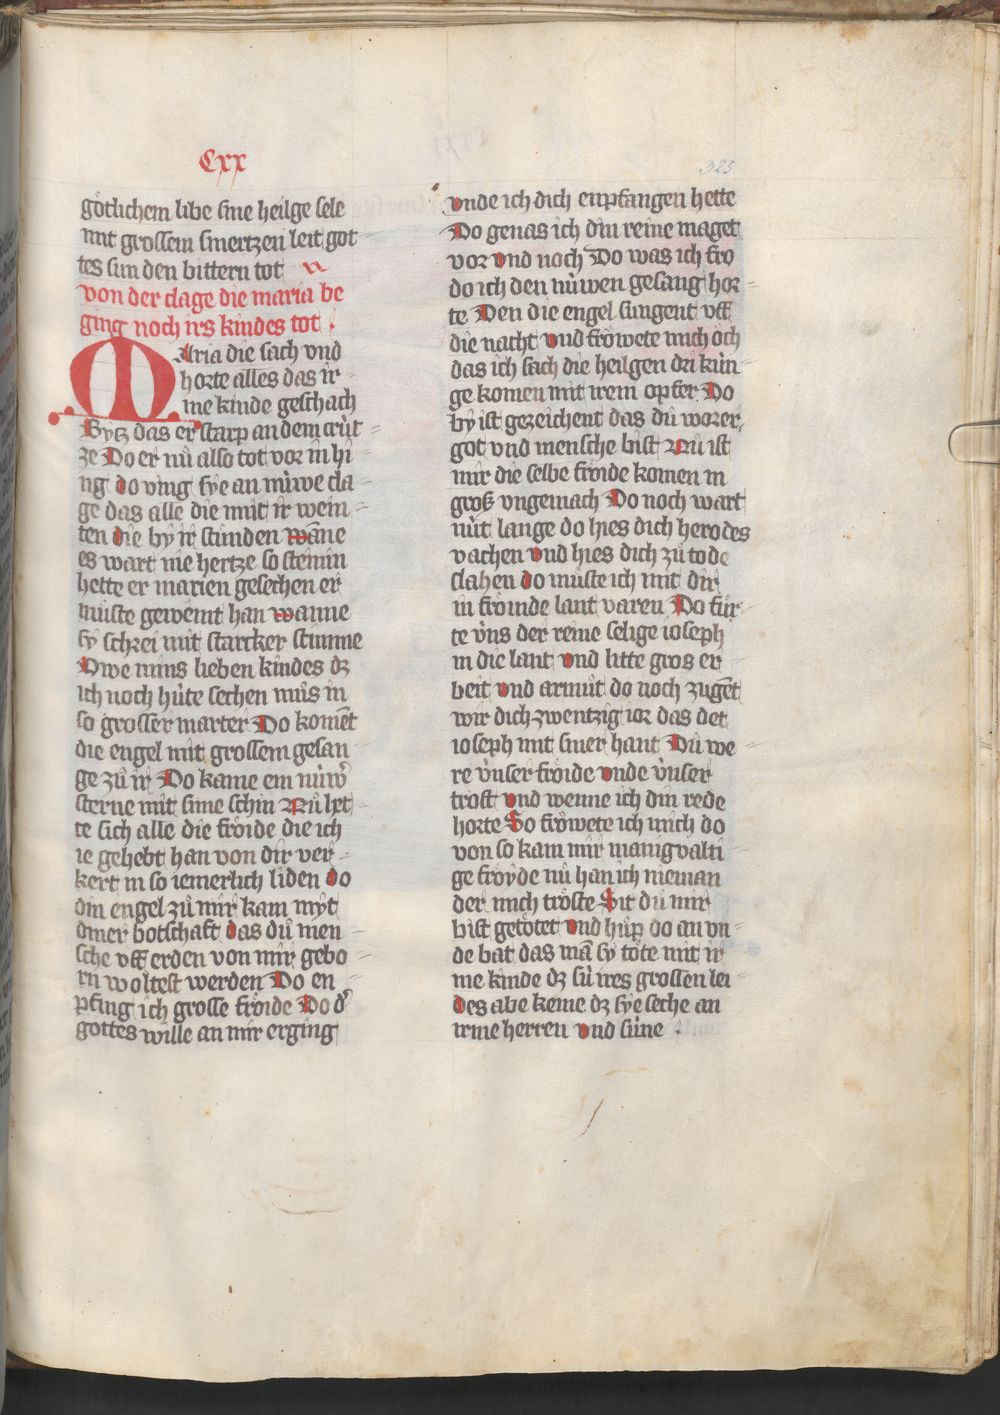 Cxx
325
götlichem libe sine heilge sele
mit grossem smertzen leit got
tes sun den bittern tot
von der clage die maria be
ging noch irs kindes tot
Maria die sach vnd
horte alles das ir
me kinde geschach
Bytz das er starp an dem crút
ze Do er nů also tot vor in hi
ng do ving sye an núwe cla
ge das alle die mit ir wein
ten die by ir stůnden wāne
es wart nie hertze so steinin
hette er marien gesechen er
můste geweint han wanne
sy schrei mit starcker stimme
Owe mins lieben kindes dz
ich noch húte sechen můs in
so grosser marter Do komēt
die engel mit grossem gesan
ge zů ir Do kame ein núwer
sterne mit sime schin Nů
te sich alle die fröide die ich
ie gehebt han von dir ver
kert in so iemerlich liden do
din engel zů mir kam myt
diner botschaft das dů men
sche vff erden von mir gebo
rn woltest werden Do en
pfing ich grosse fröide Do der
gottes wille an mir erging
vnde ich dich enpfangen hette
Do genas ich din reine maget
vor vnd noch Do was ich fro
do ich den núwen gesang hor
te Den die engel sungent vff
die nacht vnd fröwete mich och
das ich sach die heilgen dri kún
ge komen mit irem opfer Do
by ist gezeichent das dů worer
got vnd mensche bist Nů ist
mir die selbe fröide komen in
groß vngemach Do noch wart
nút lange do hies dich herodes
vachen vnd hies dich zů tode
slahen do můste ich mit dir
in frömde lant varen Do fůr
te v́ns der reine selige ioseph
in die lant vnd litte gros er
beit vnd armůt do noch zugēt
wir dich zwentzig ior das det
ioseph mit siner hant Dů we
re v́nser fröide vnde v́nser
trost vnd wenne ich din rede
horte So fröwete ich mich do
von so kam mir manigvalti
ge fröyde nů han ich nieman
der mich tröste Sit dů mir
bist getötet vnd hůp do an vn
de bat das mā sy töte mit ir
me kinde dz sú ires grossen lei
des abe keme dz sye seche an
irme herren vnd súne